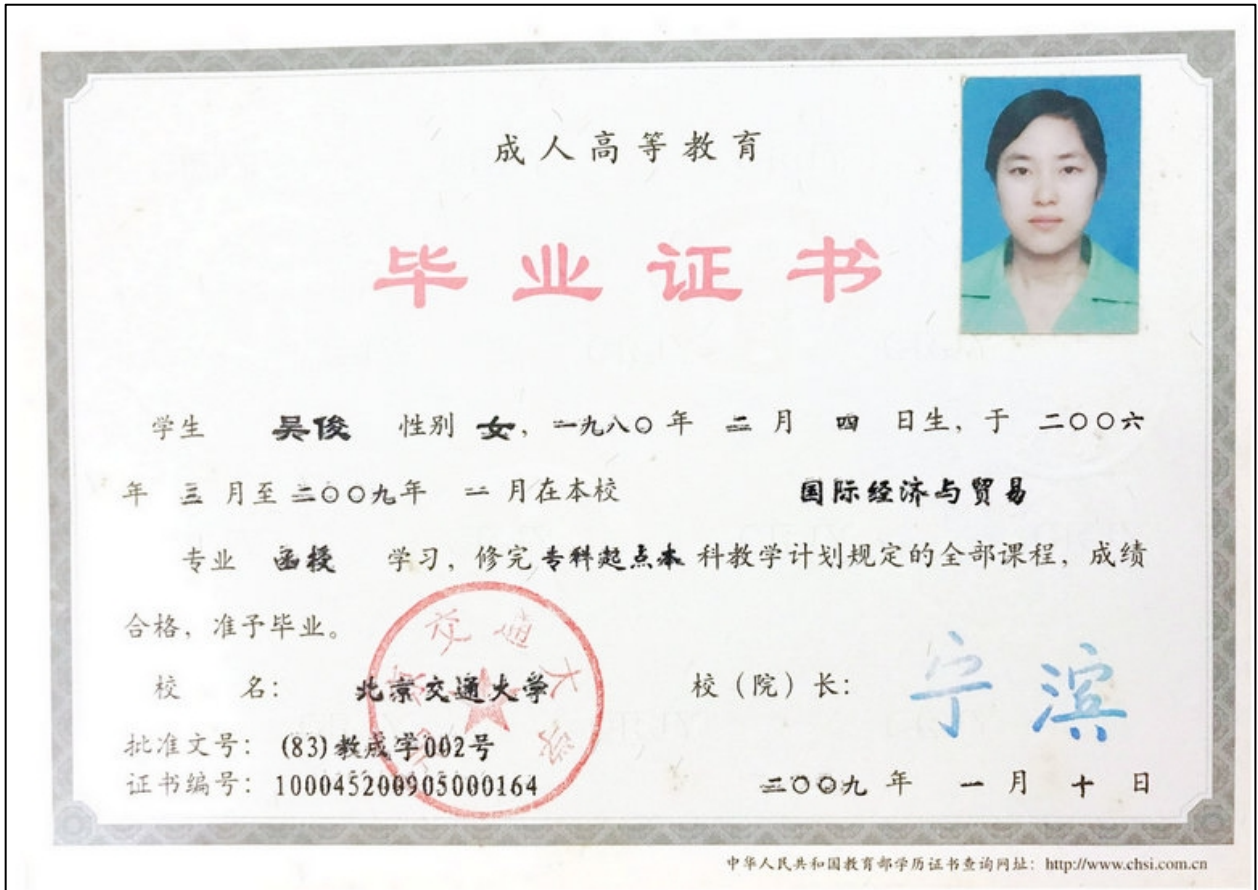 成人高等教育
毕业证书
学生 吴俊 性别 女，一九八〇年 二 月 四 日生，于 二〇〇六
年 三 月至 二〇〇九年 一 月在本校 国际经济与贸易
专业 函授 学习，修完 专科起点本 科教学计划规定的全部课程，成绩
合格，准予毕业。
校 名： 北京交通大学 校（院）长： 宁滨
批准文号： (83)教成字002号
证书编号： 100045200905000164 二〇〇九 年 一 月 十 日
北京交通大学
中华人民共和国教育部学历证书查询网址： http://www.chsi.com.cn